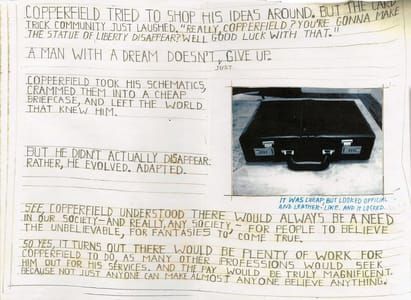 COPPERFIELD TRIED TO SHOP HIS IDEAS AROUND. BUT THE CARD
TRICK COMMUNITY JUST LAUGHED. "REALLY, COPPERFIELD? YOU'RE GONNA MAKE
THE STATUE OF LIBERTY DISAPPEAR? WELL GOOD LUCK WITH THAT."
A MAN WITH A DREAM DOESN'T, GIVE UP.
JUST
COPPERFIELD TOOK HIS SCHEMATICS,
CRAMMED THEM INTO A CHEAP
BRIEFCASE, AND LEFT THE WORLD
THAT KNEW HIM.
BUT HE DIDN'T ACTUALLY DISAPPEAR.
RATHER, HE EVOLVED. ADAPTED.
IT WAS CHEAP, BUT LOOKED OFFICIAL
AND LEATHER-LIKE. AND IT LOCKED.
SEE, COPPERFIELD UNDERSTOOD THERE WOULD ALWAYS BE A NEED
IN OUR SOCIETY—AND REALLY, ANY SOCIETY,—FOR PEOPLE TO BELIEVE
THE UNBELIEVABLE, FOR FANTASIES TO COME TRUE.
SO YES, IT TURNS OUT THERE WOULD BE PLENTY OF WORK FOR
COPPERFIELD TO DO, AS MANY OTHER PROFESSIONS WOULD SEEK
HIM OUT FOR HIS SERVICES. AND THE PAY WOULD BE TRULY MAGNIFICENT.
BECAUSE NOT JUST ANYONE CAN MAKE ALMOST ANYONE BELIEVE ANYTHING.